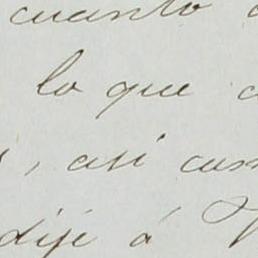 cuanto
lo que
, así com
dije á V